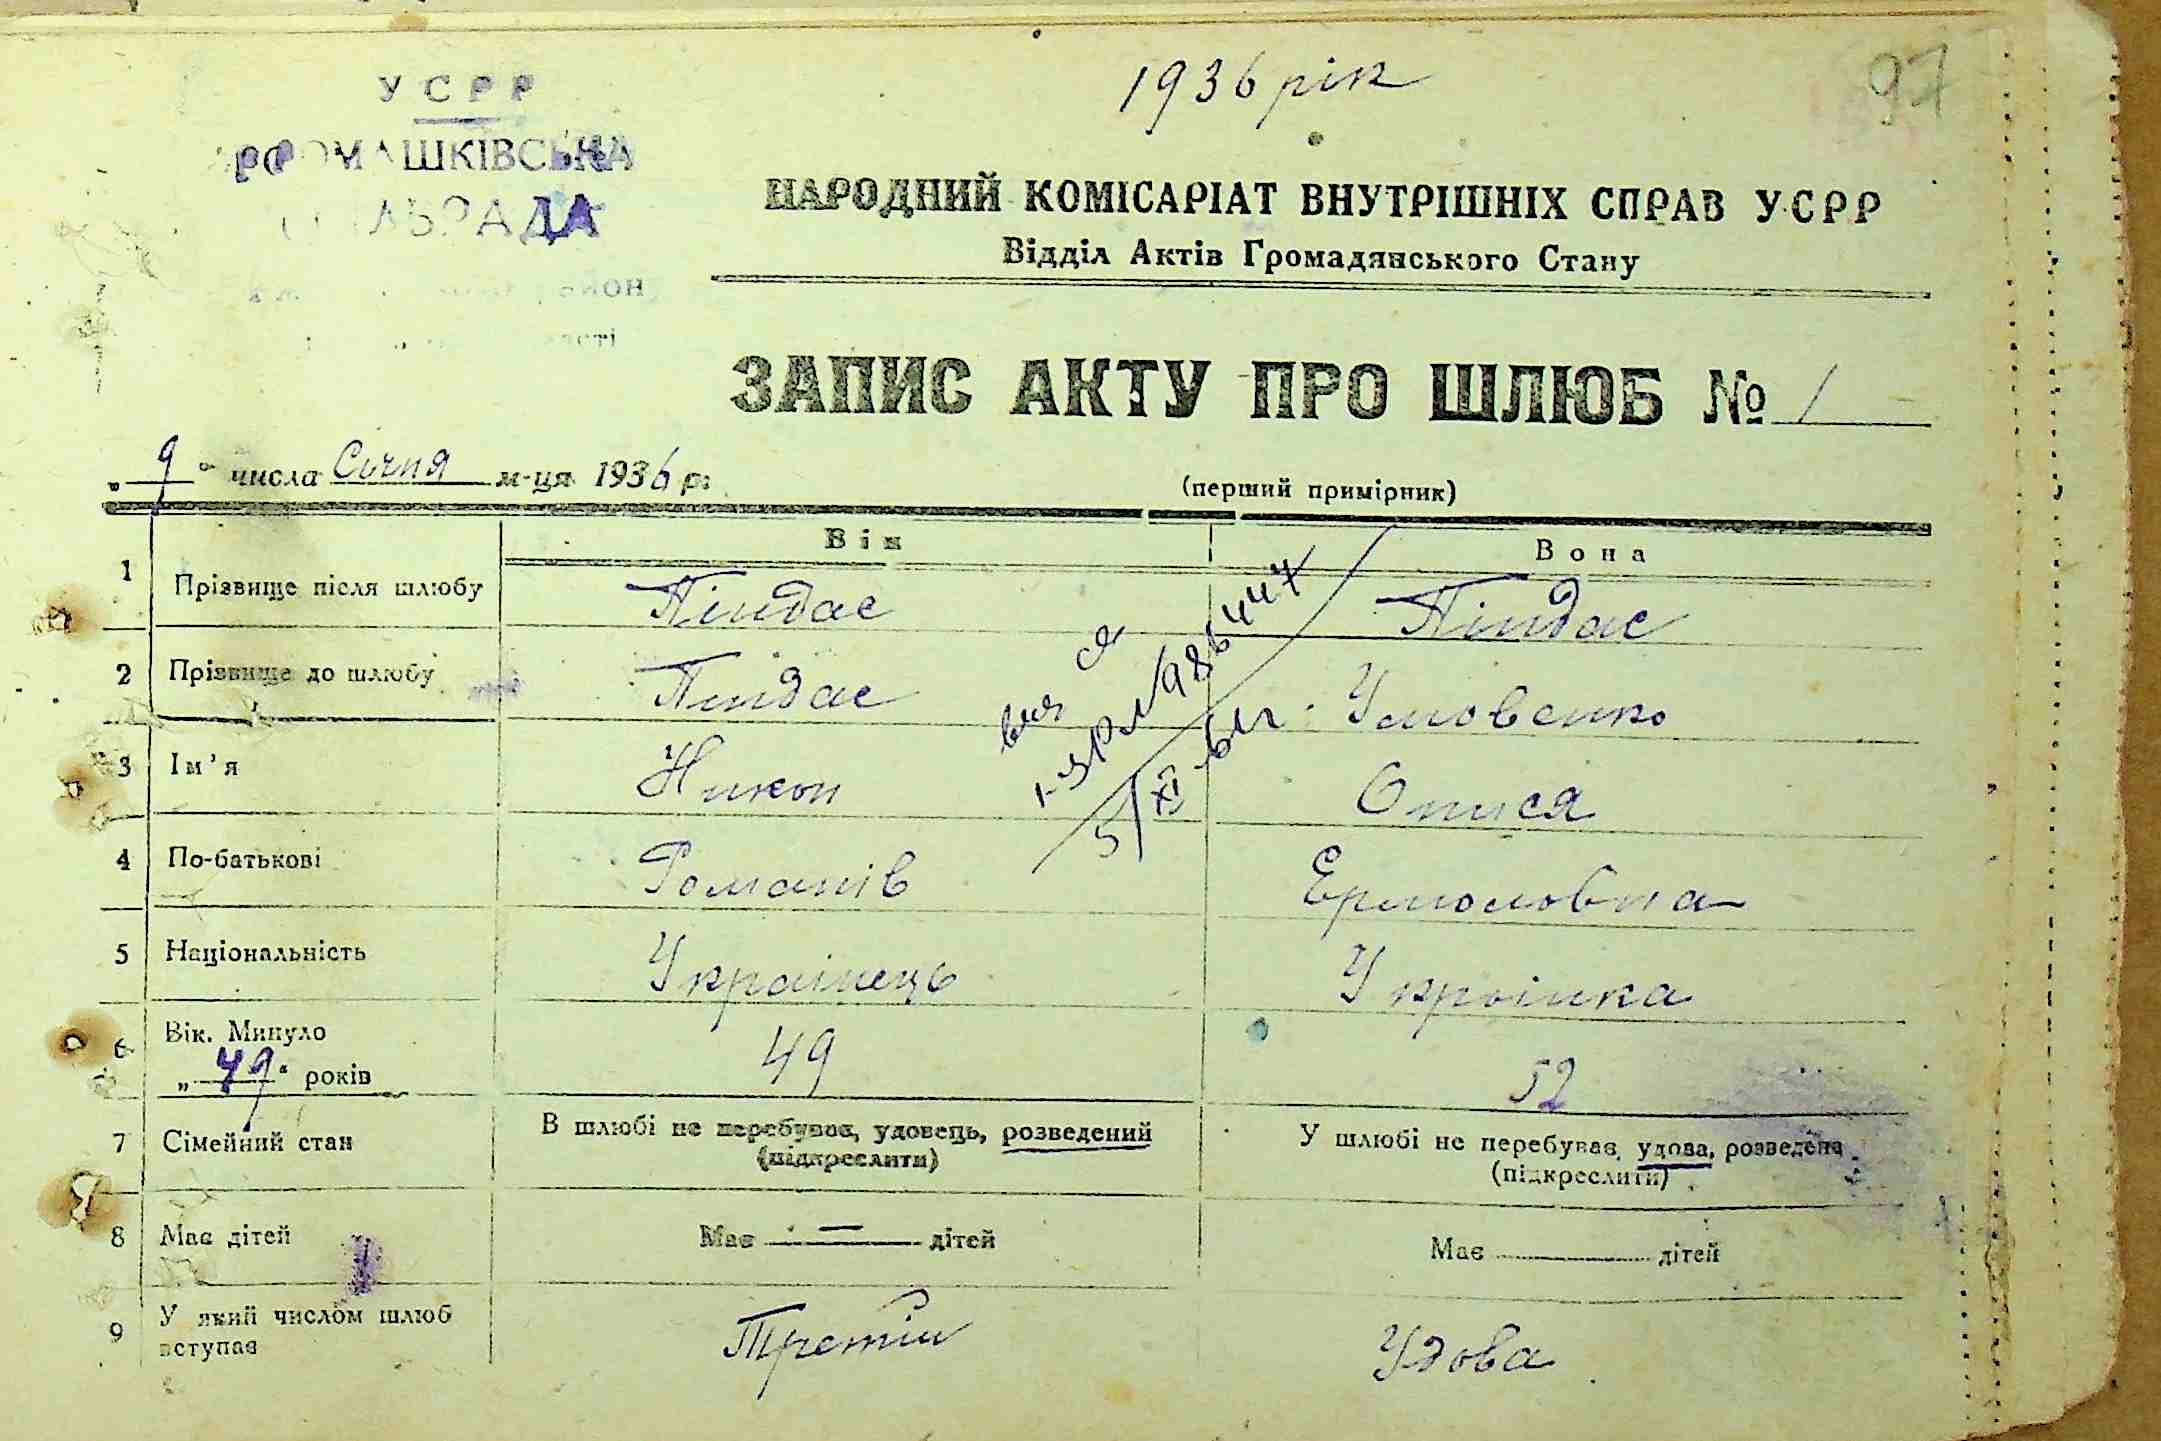 1936 рік
97
УСРР
РОМАШКІВСЬКА
СІЛЬРАДА
НАРОДНИЙ КОМІСАРІАТ ВНУТРІШНІХ СПРАВ УСРР
Відділ Актів Громадянського Стану
ЗАПИС АКТУ ПРО ШЛЮБ № 1
„9“ числа Січня м-ця 1936 р.
(перший примірник)
Він Вона
1 Прізвище після шлюбу Піндас Піндас
2 Прізвище до шлюбу Піндас Умовенко
3 Ім'я Никон Опися
4 По-батькові Романів Ермоловна
5 Національність Українець Українка
6 Вік. Минуло „49“ років 49 52
7 Сімейний стан В шлюбі не перебував, удовець, розведений (підкреслити) У шлюбі не перебував, удова, розведена (підкреслити)
8 Має дітей Має — дітей Має дітей
9 У який числом шлюб вступає Третій Удова